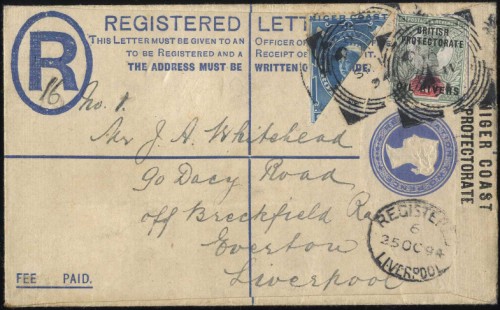 R
REGISTERED LET
THIS LETTER MUST BE GIVEN TO AN OFFICER OF
TO BE REGISTERED AND A RECEIPT OF
THE ADDRESS MUST BE WRITTEN
NIGER COAST
BRITISH
PROTECTORATE
OIL RIVERS
NIGER COAST
PROTECTORATE
16
No. 1.
Mr J. A. Whitehead
90 Dacy Road
off Breckfield Rd
Everton
Liverpool
REGISTERED
6
25 OC 94
LIVERPOOL
FEE PAID.